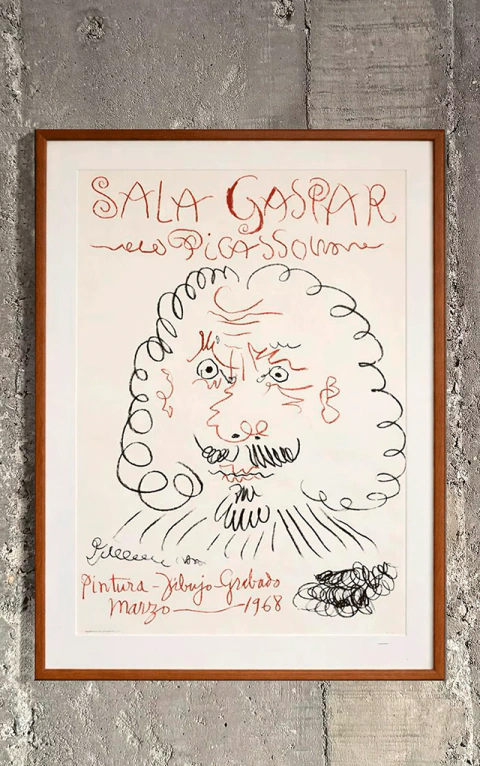 SALA GASPAR
PICASSO
Pintura-Dibujo-Grabado
Marzo — 1968